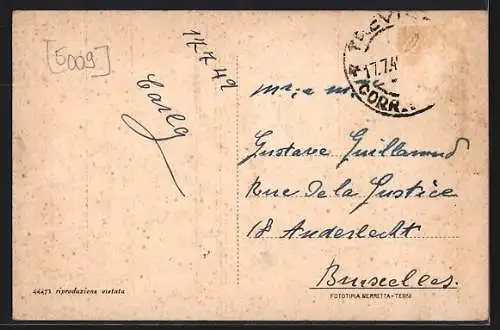 [5009]
17 7 49
Carlg
TREVI
17.7.4
CORR.
Mr: e M
Gustave Guillamond
Rue De la Justice
18 Anderlecht
Bruxelles.
44471 riproduzione vietata
FOTOTIPIA BERRETTA - TERNI